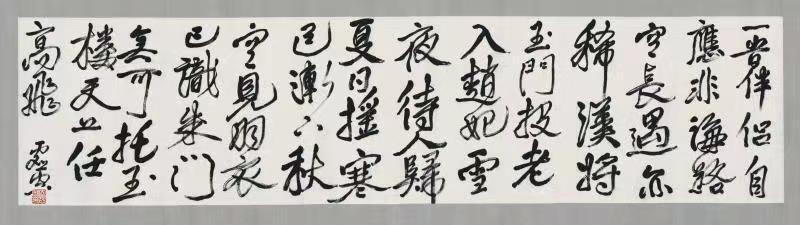 一伴侶自
應非路
空長遇亦
稀漢將
玉門投老
入趙妃雪
夜待人歸
夏日搖寒
色漸下秋
空見羽衣
已識朱門
無可托玉
樓天上任
高飛